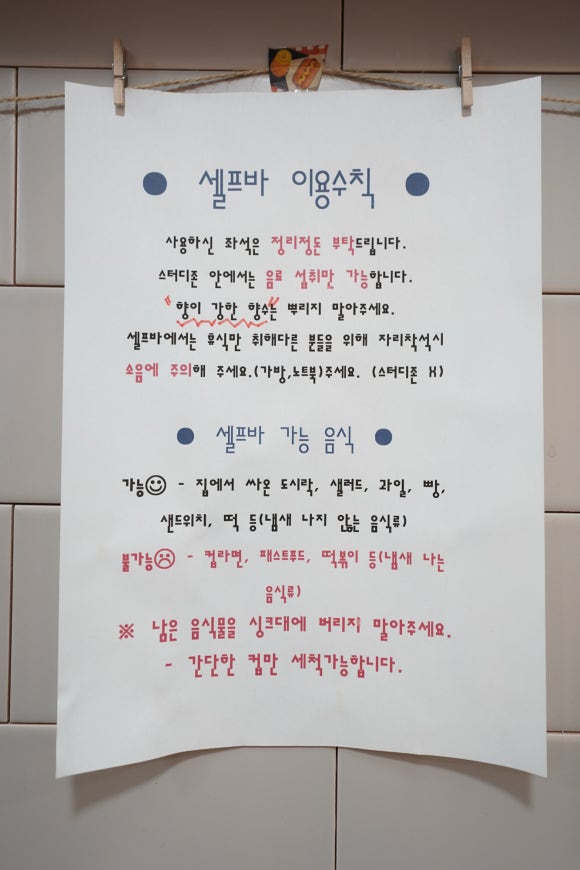 ● 셀프바 이용수칙 ●
사용하신 좌석은 정리정돈 부탁드립니다.
스터디존 안에서는 음료 섭취만 가능합니다.
"향이 강한 향수"는 뿌리지 말아주세요.
셀프바에서는 휴식만 취해다른 분들을 위해 자리착석시
소음에 주의해 주세요.(가방,노트북)주세요. (스터디존 X)
● 셀프바 가능 음식 ●
가능☺ - 집에서 싸온 도시락, 샐러드, 과일, 빵,
샌드위치, 떡 등(냄새 나지 않는 음식류)
불가능☹ - 컵라면, 패스트푸드, 떡볶이 등(냄새 나는
음식류)
※ 남은 음식물을 싱크대에 버리지 말아주세요.
- 간단한 컵만 세척가능합니다.